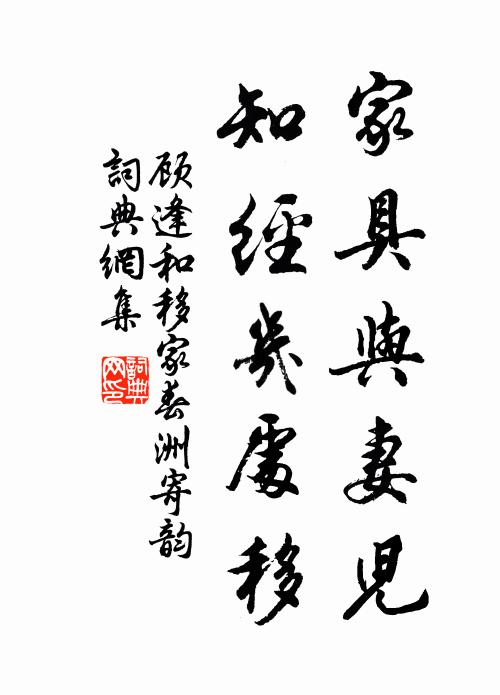 家具與妻児
知經幾處移
顾逢和移家春洲寄韵
詞典網集
詞典网印